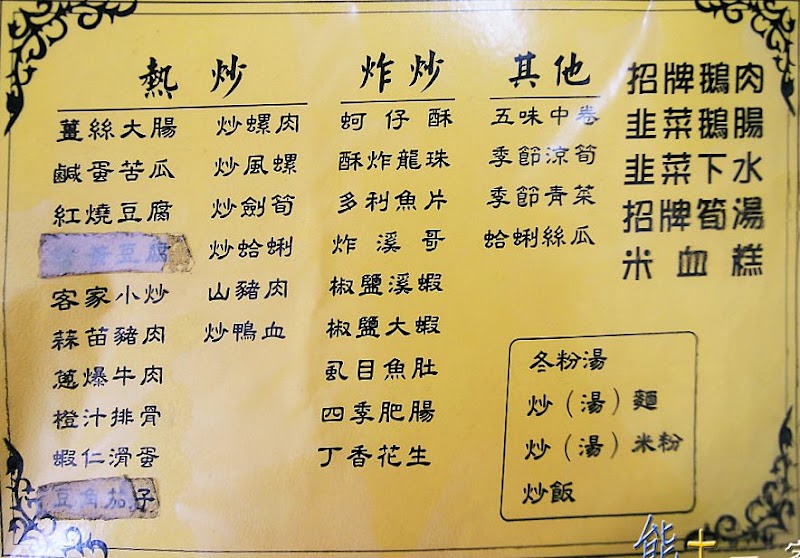 熱炒
薑絲大腸
鹹蛋苦瓜
紅燒豆腐
豆腐
客家小炒
蒜苗豬肉
蔥爆牛肉
橙汁排骨
蝦仁滑蛋
豆角茄子
炒螺肉
炒風螺
炒劍筍
炒蛤蜊
山豬肉
炒鴨血
炸炒
蚵仔酥
酥炸龍珠
多利魚片
炸溪哥
椒鹽溪蝦
椒鹽大蝦
虱目魚肚
四季肥腸
丁香花生
其他
五味中卷
季節涼筍
季節青菜
蛤蜊絲瓜
招牌鵝肉
韭菜鵝腸
韭菜下水
招牌筍湯
米血糕
冬粉湯
炒(湯)麵
炒(湯)米粉
炒飯
熊